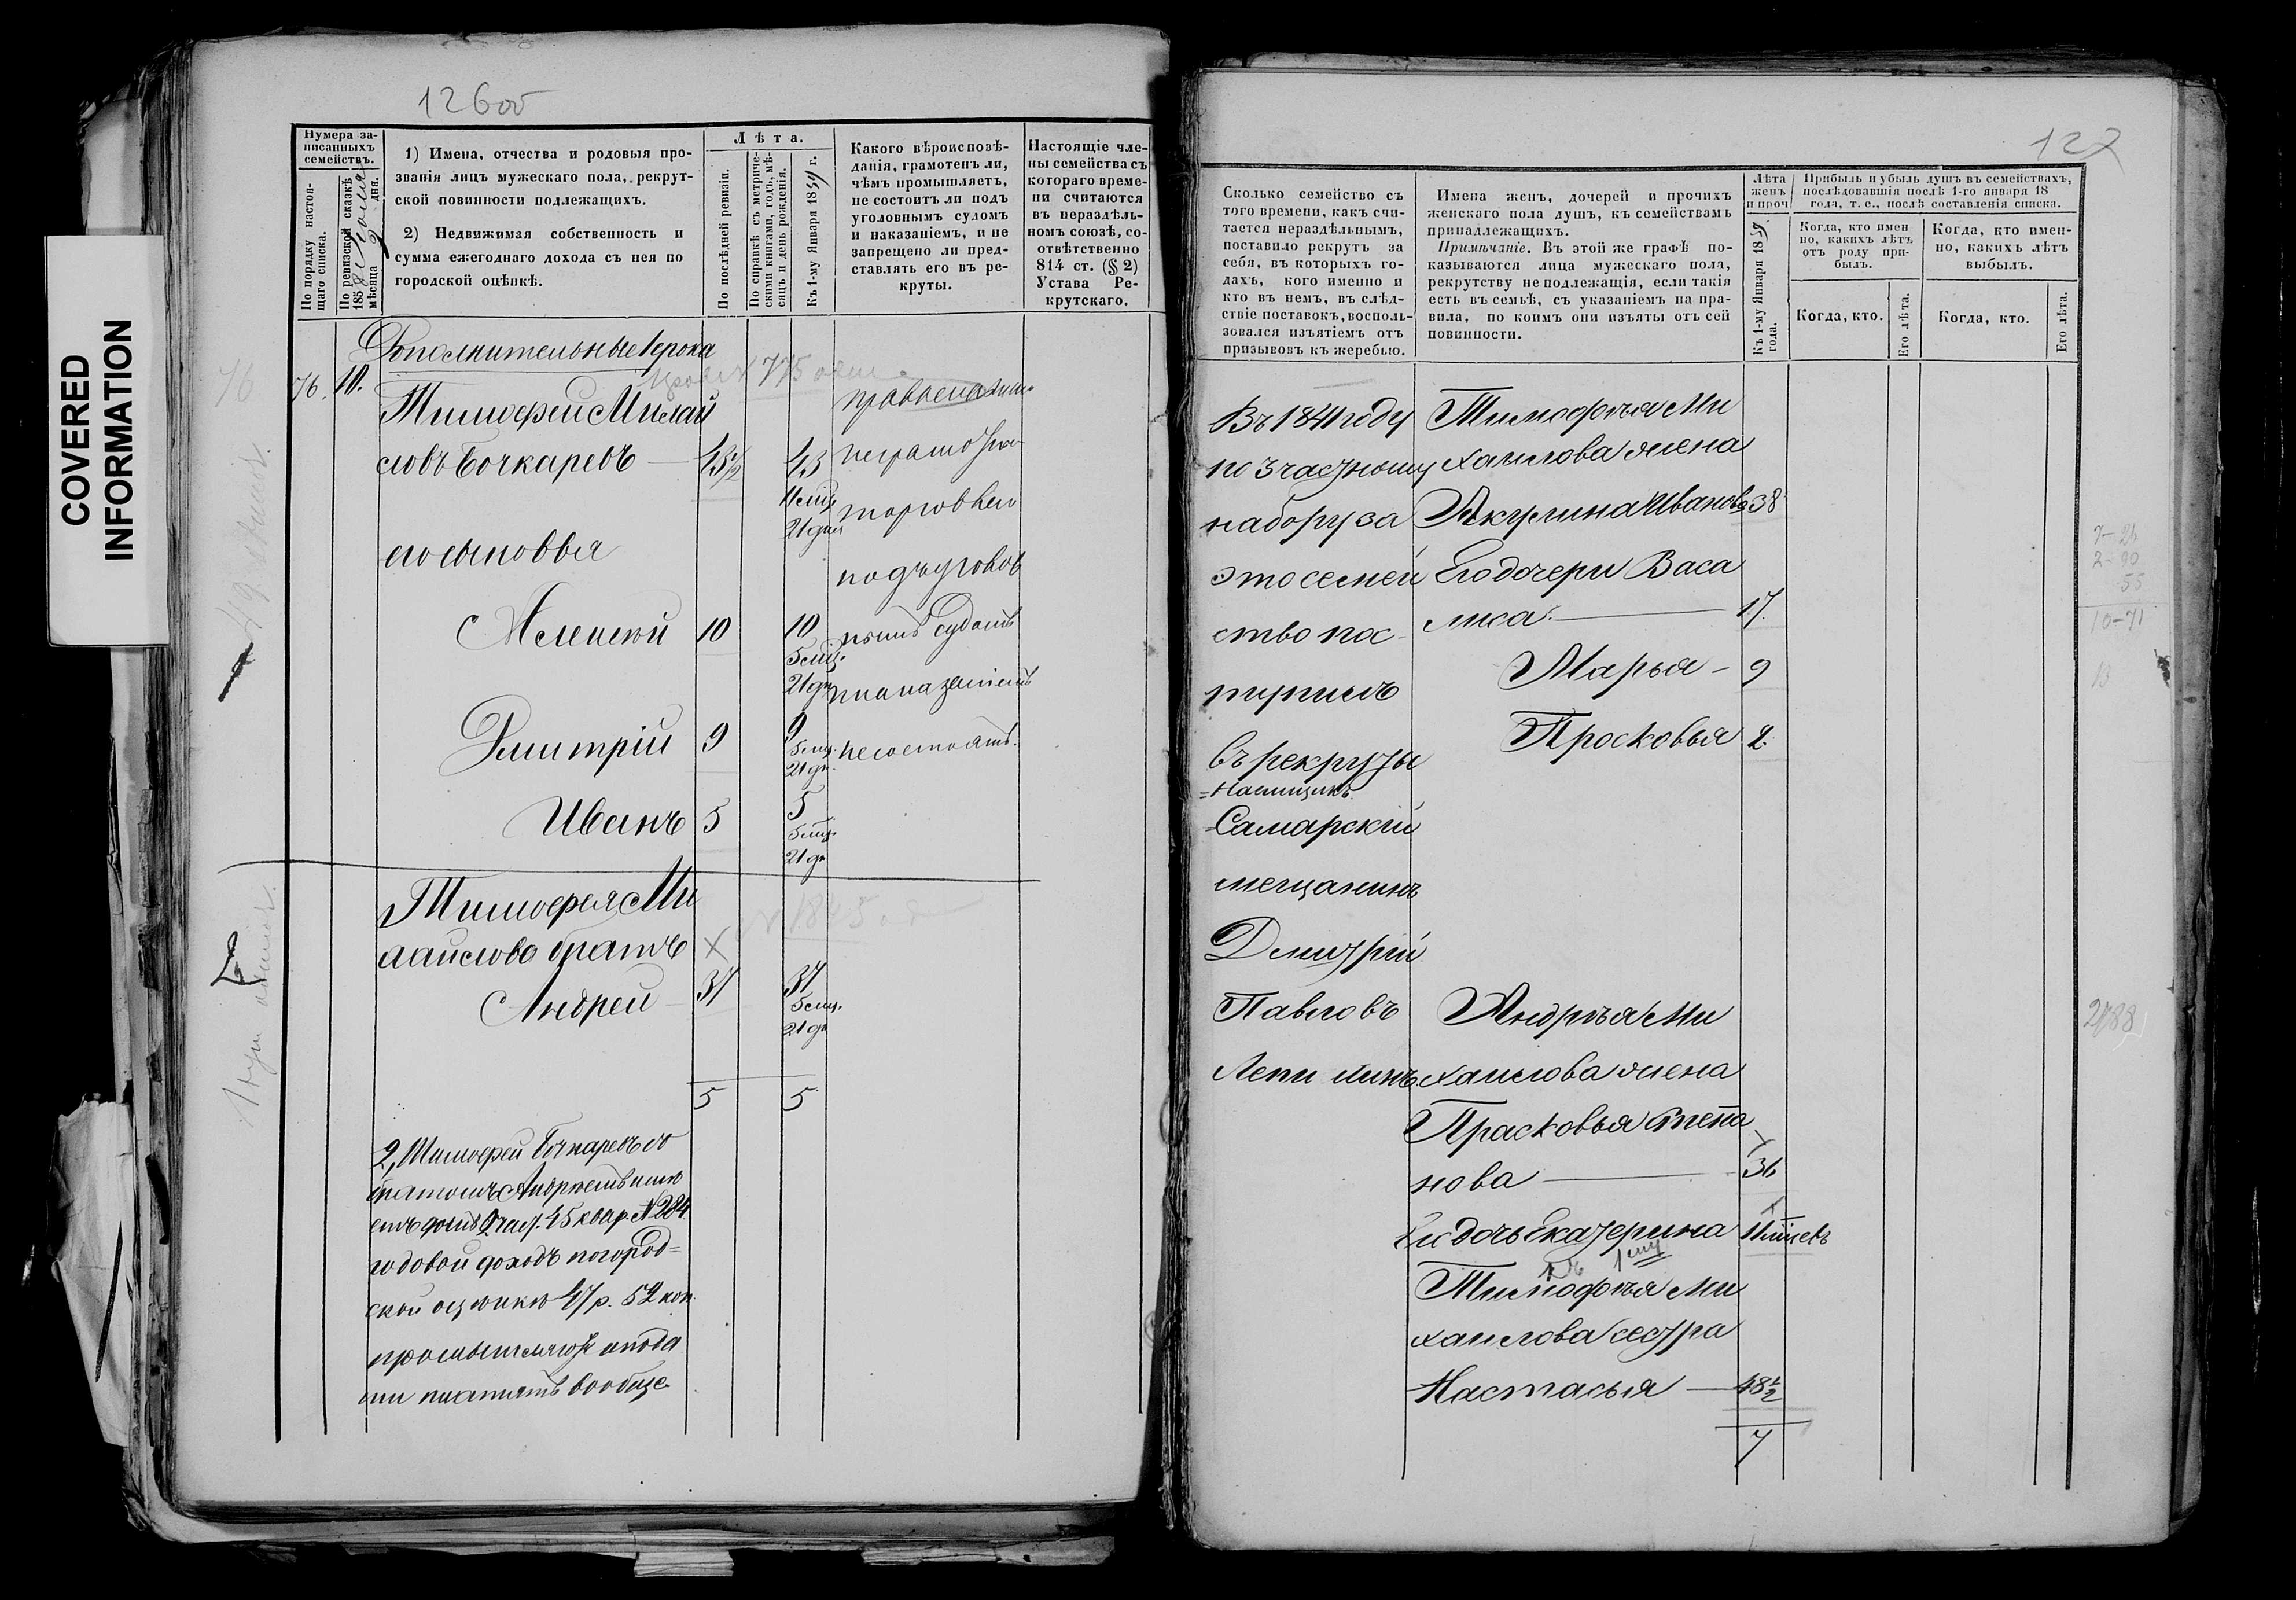 126об
Нумера за-
писанныхъ
семействъ.
По порядку настоя-
щаго списка.
По ревизской сказкѣ
1858 г.
мѣсяца дня.
1) Имена, отчества и родовыя про-
званія лицъ мужескаго пола, рекрут-
ской повинности подлежащихъ.
2) Недвижимая собственность и
сумма ежегоднаго дохода съ нея по
городской оцѣнкѣ.
Лѣта.
По послѣдней ревизіи.
По справкѣ съ метриче-
скими книгами, годъ, мѣ-
сяцъ и день рожденія.
Къ 1-му Января 1859 г.
Какого вѣроисповѣ-
данія, грамотенъ ли,
чѣмъ промышляетъ,
не состоитъ ли подъ
уголовнымъ судомъ
и наказаніемъ, и не
запрещено ли пред-
ставлять его въ ре-
круты.
Настоящіе чле-
ны семейства съ
котораго време-
ни считаются
въ нераздѣль-
номъ союзѣ, со-
отвѣтственно
814 ст. (§ 2)
Устава Ре-
крутскаго.
76
76. 10.
Тимофей Михай
ловъ Бочкаревъ — 43½ 43
11 мѣц.
21 дня
его сыновья
Алексѣй 10 10
5 мц.
21 дн
Дмитрій 9 9
5 мц.
21 дн.
Иванъ 5 5
5 мц.
21 дн
православн.
неграмотн.
торговлею
подъ уголов
нымъ судомъ
и наказаніемъ
не состоятъ.
Тимофея Ми
хайлова братъ
Андрей — 37 37
5 мц.
21 дн
5 5
2, Тимофей Бочкаревъ съ
братомъ Андреемъ имѣ
етъ домъ 2 част. 45 квар. № 284
годовой доходъ по город=
ской оцѣнкѣ 47 р. 52 коп.
промышляютъ и пода
ти платятъ вообще.
127
Сколько семейство съ
того времени, какъ счи-
тается нераздѣльнымъ,
поставило рекрутъ за
себя, въ которыхъ го-
дахъ, кого именно и
кто въ немъ, въ слѣд-
ствіе поставокъ, восполь-
зовался изъятіемъ отъ
призывовъ къ жеребью.
Имена женъ, дочерей и прочихъ
женскаго пола душъ, къ семействамъ
принадлежащихъ.
Примѣчаніе. Въ этой же графѣ по-
казываются лица мужескаго пола,
рекрутству не подлежащія, если такія
есть въ семьѣ, съ указаніемъ на пра-
вила, по коимъ они изъяты отъ сей
повинности.
Лѣта
женъ
и проч
Къ 1-му Января 1859
года.
Прибыль и убыль душъ въ семействахъ,
послѣдовавшія послѣ 1-го января 18
года, т. е., послѣ составленія списка.
Когда, кто имен
но, какихъ лѣтъ
отъ роду при-
былъ.
Когда, кто имен-
но, какихъ лѣтъ
выбылъ.
Когда, кто.
Его лѣта.
Когда, кто.
Его лѣта.
Въ 1841 году
по 3 частному
набору за
это семей
ство пос
тупилъ
въ рекруты
=Наемщикъ
Самарскій
мещанинъ
Дмитрій
Павловъ
Тимофѣя Ми
хаилова жена
Акулина Иванова 38
Его дочери Васа
лиса. — 17.
Марья — 9
Просковья 2.
Андрѣя Ми
хаилова жена
Прасковья Степа
нова — 36
Его дочь Екатерина 11 мѣсцевъ
Тимофѣя Ми
хаилова сестра
Настасья — 48½
7
7-21
2-90
55
10-71
COVERED
INFORMATION